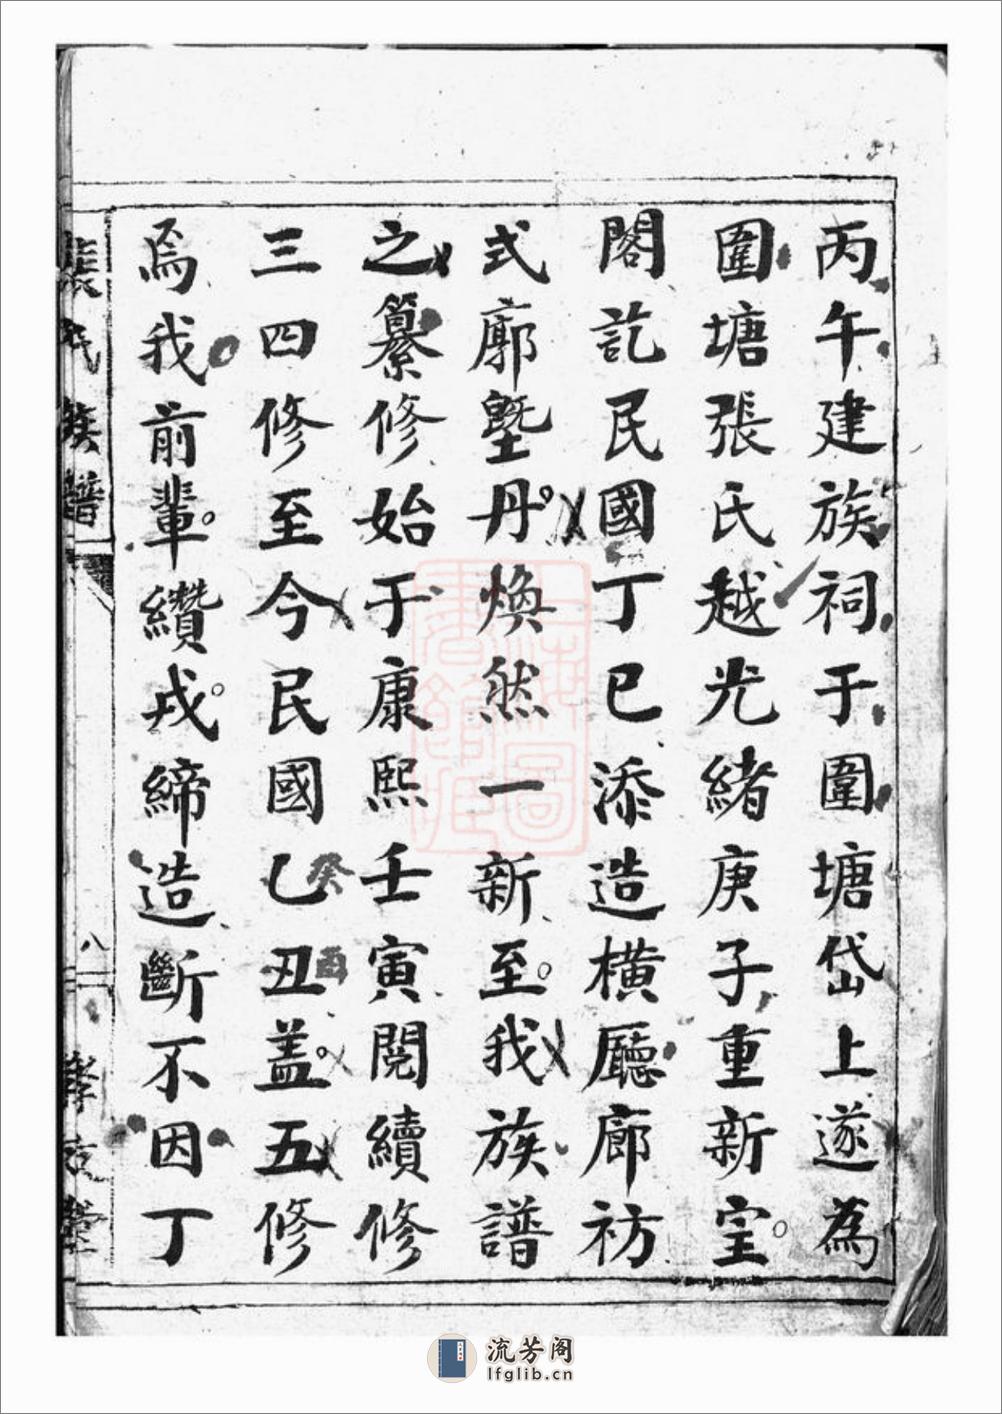 丙午建族祠于圍塘岱上遂為
圍塘張氏越光緒庚子重新室
閣訖民國丁巳添造橫廳廊祊
式廓塈丹煥然一新至我族譜
之纂修始于康熙壬寅閱續修
三四修至今民國乙丑盖五修
癸酉
焉我前輩纘戎締造斷不因丁
張氏族譜
八
孝友堂
流芳阁
lfglib.cn